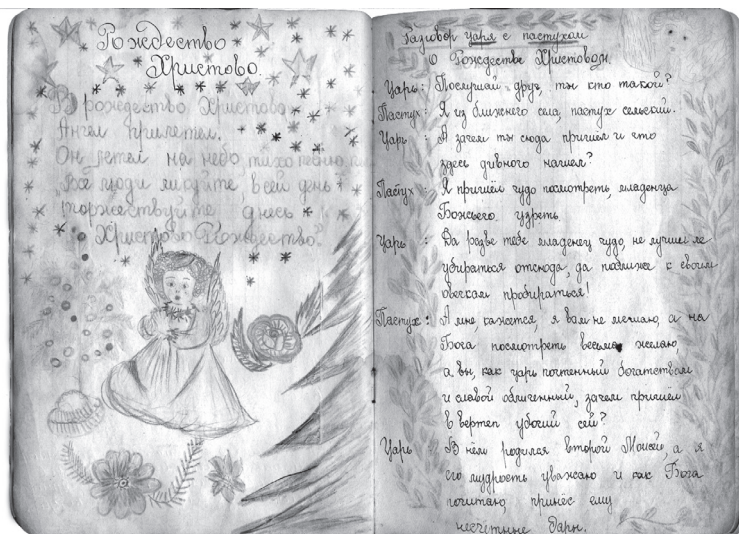 Рождество
Христово.
В рождество Христово
Ангел прилетел.
Он летел на небо, тихо песню пел
„Все люди ликуйте, всей день
торжествуйте днесь
Христово Рождество."
Разговор царя с пастухом
о Рождестве Христовом.
Царь: Послушай друг, ты кто такой?
Пастух: Я из ближнего села, пастух сельский.
Царь: А зачем ты сюда пришёл и что
здесь дивного нашёл?
Пастух: Я пришёл чудо посмотреть, младенца
Божьего узреть.
Царь: Да разве тебе младенец чудо, не лучше ле
убираться отсюда, да поближе к своим
овечкам пробираться!
Пастух: А мне кажется, я вам не мешаю, а на
Бога посмотреть весьма желаю,
а вы, как царь почтенный, богатством
и славой обличенный, зачем пришёл
в вертеп убогий сей?
Царь В нём родился второй Моисей, а я
его мудрость уважаю и как Бога
почитаю, принёс ему
несчётные дары.